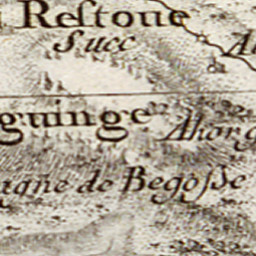 Reſtoue
Succ
guinge Ahorg
agne de Begoſſe